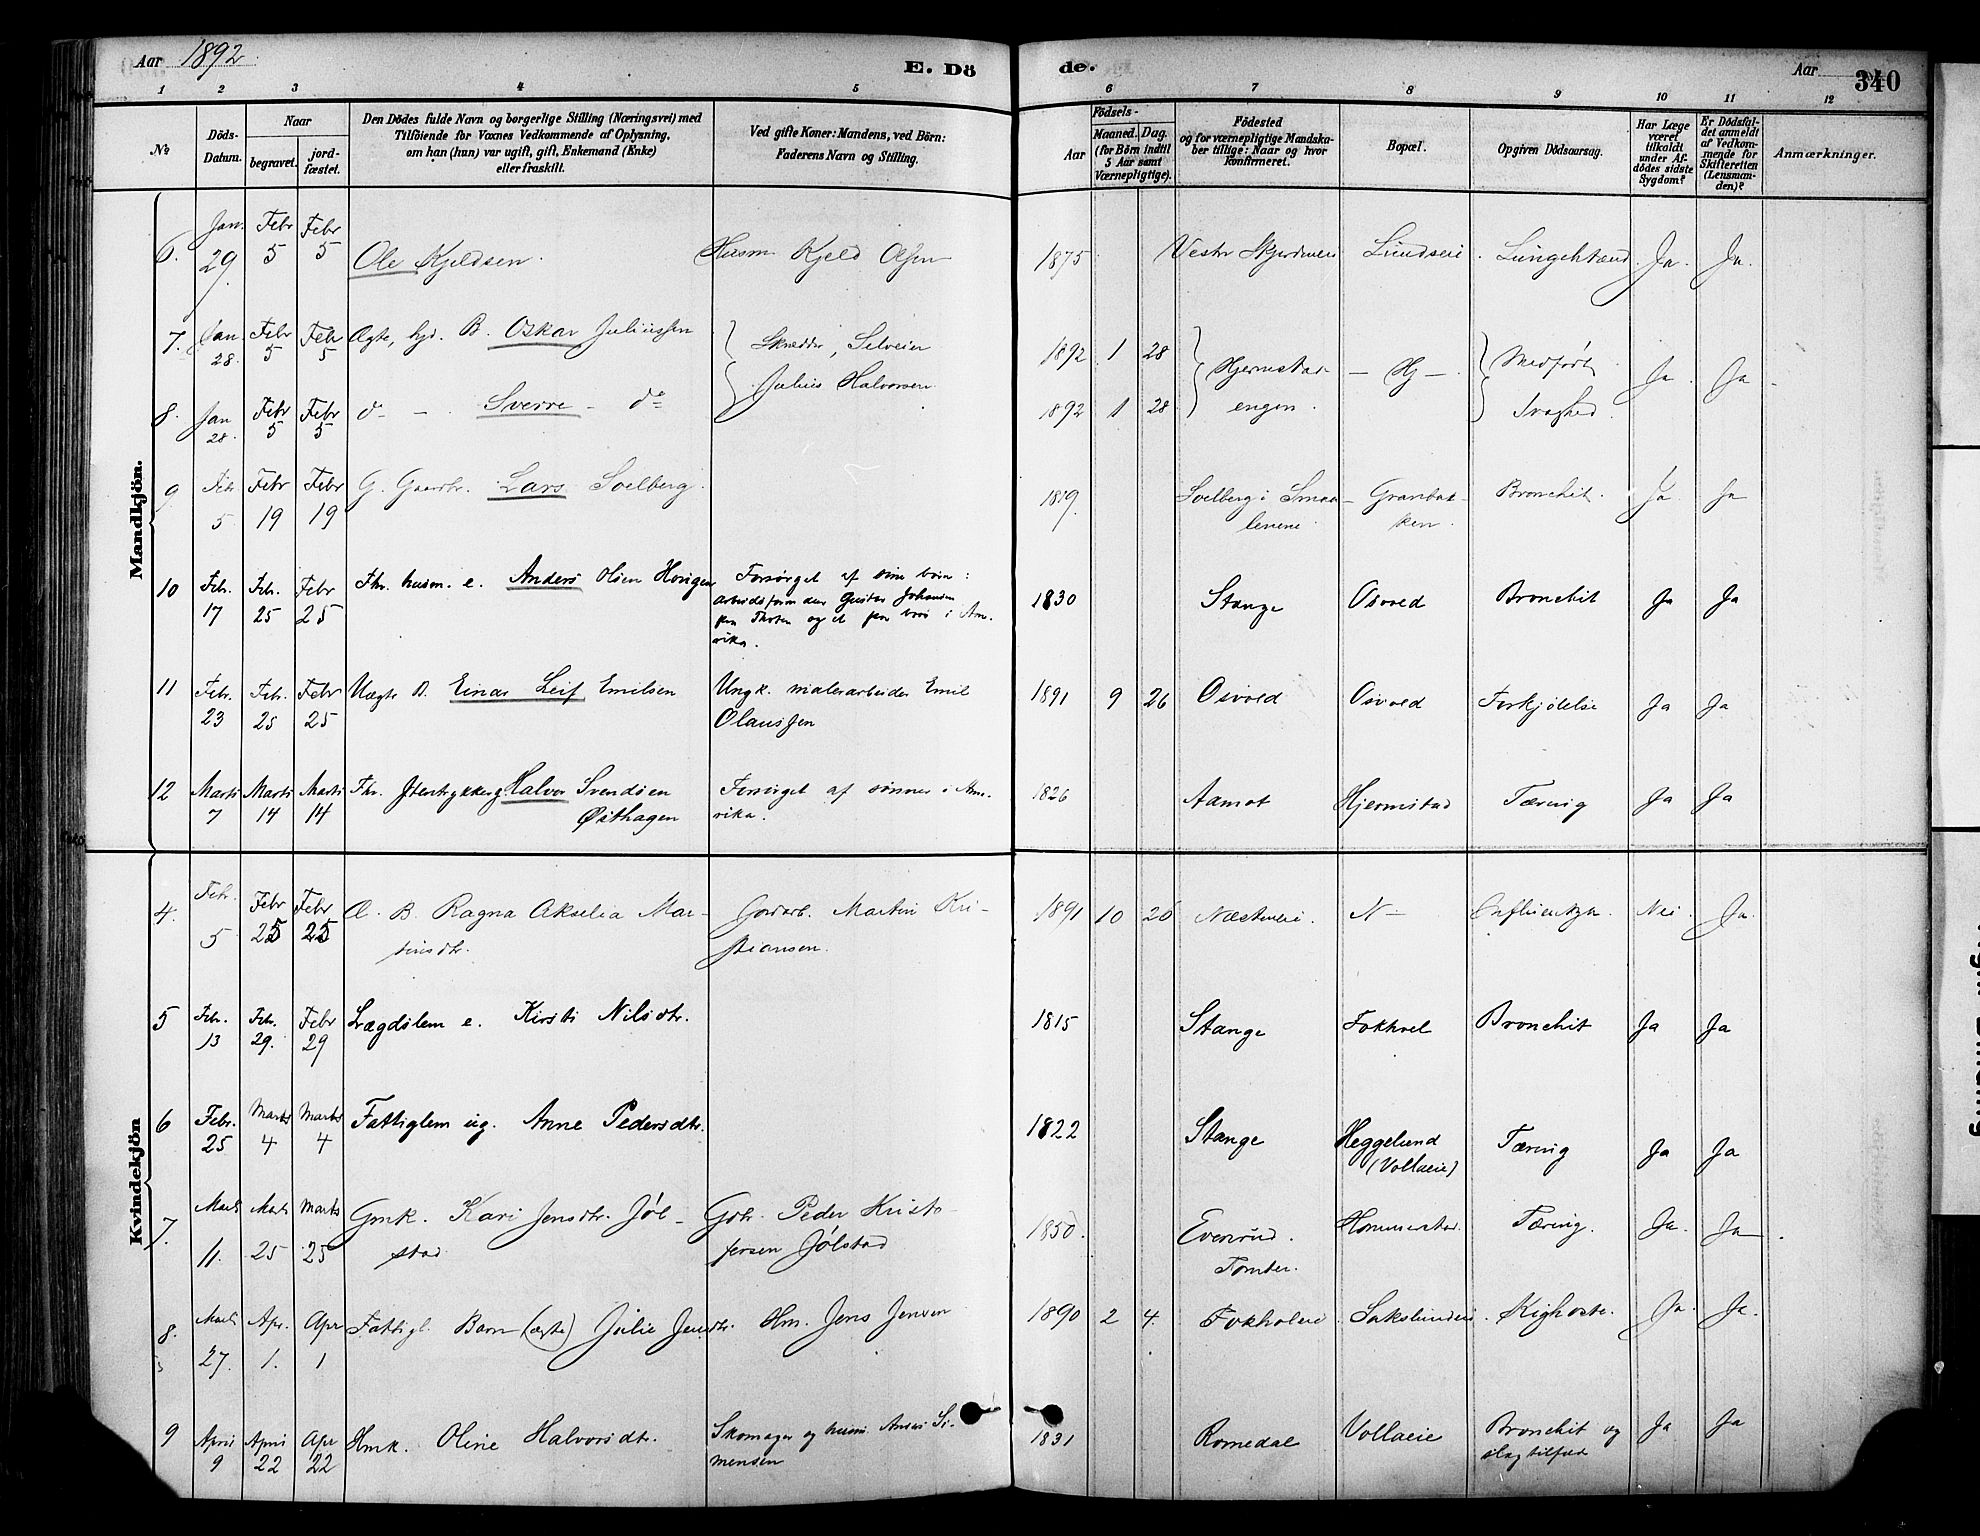 Aar 1892
E. Dö
de.
Aar
340
1 2 3 4 5 6 7 8 9 10 11 12
No
Döds-Datum.
Naar
begravet.
jord-fæstet.
Den Dödes fulde Navn og borgerlige Stilling (Næringsvei) med
Tilföiende for Voxnes Vedkommende af Oplysning,
om han (hun) var ugift, gift, Enkemand (Enke)
eller fraskilt.
Ved gifte Koner: Mandens, ved Börn:
Faderens Navn og Stilling.
Födsels-
Aar
Maaned. Dag.
(for Börn indtil
5 Aar samt
Værnepligtige).
Födested
og for værnepligtige Mandska-
ber tillige: Naar og hvor
Konfirmeret.
Bopæl.
Opgiven Dödsaarsag.
Har Læge
været
tilkaldt
under Af-
dödes sidste
Sygdom?
Er Dödsfal-
det anmeldt
af Vedkom-
mende for
Skifteretten
(Lensman-
den)?
Anmærkninger.
Mandkjön.
6. Jan. 29. Febr 5 Febr 5 Ole Kjeldsen. Husm Kjeld Olsen 1875 Vestr Lundseie Ja. Ja.
7. Jan. 28. Febr 5 Febr 5 Ægte, B. Oskar Juliussen Skrædder, 1892 1 28 Medfødt Ja. Ja
Julius Halvorsen Hj
8. Jan 28. Febr 5 Febr 5 do Sverre do 1892 1 28 engen. Svaghed.
9 Febr 5. Febr 19 Febr 19 G. Gaardbr. Lars Solberg. 1819. Solberg i Smaa-lenene Granbak-ken. Bronchit. Ja Ja
10 Febr. 17 Febr. 25 Febr 25 Fhv. husm. e. Anders Olsen Horigen Forsørget af sine børn: 1830 Stange Osvold Bronchit Ja Ja
arbeidsformand Gustav Johansen
paa Thoten og et par børn i Ame-
rika.
11 Febr. 23 Febr. 25 Febr 25 Uægte B. Einar Leif Emilsen Ungk. malerarbeider Emil 1891 9 26 Osvold Osvold Forkjølelse Ja Ja
Olaussen
12 Marts 7 Marts 14 Marts 14 Fhv. Halvor Svendsen Forsørget af sønner i Ame- 1826 Aamot Hjermstad Tæring Ja Ja
Østhagen rika.
Kvindekjön
4. Febr. 5 Febr 25 Febr 25 Æ. B. Ragna Akselia Mar- Gaardarb. Martin Kri- 1891 10 20 Næstneie. N- Influentza. Nei. Ja.
tinsdtr. stiansen.
5 Febr. 13 Febr. 29. Febr 29 Lægdslem e. Kirsti Nilsdtr. 1815 Stange Fokhol Bronchit Ja Ja
6 Febr. 25 Marts 4 Marts 4 Fattiglem ug. Anne Pedersdtr. 1822 Stange Heggelund Tæring Ja Ja
(Vollaeie)
7. Marts 11. Marts 25 Marts 25 Gmk. Kari Jensdtr. Jøl- Gbr. Peder Kristo- 1850. Evenrud. Hommerstad. Tæring. Ja. Ja.
stad fersen Jølstad Tomter.
8. Marts 27. Apr. 1. Apr 1 Fattigl. Barn (ægte) Julie Jensdtr. Hm. Jens Jensen 1890 2 4. Fokholeie. Sakslundeie. Kighoste. Ja. Ja.
9 April 9 April 22 Apr 22 Hmk. Oline Halvorsdtr. Skomager og husm. Anders Si- 1831 Romedal Vollaeie Bronchit og Ja Ja
mensen slagtilfæld